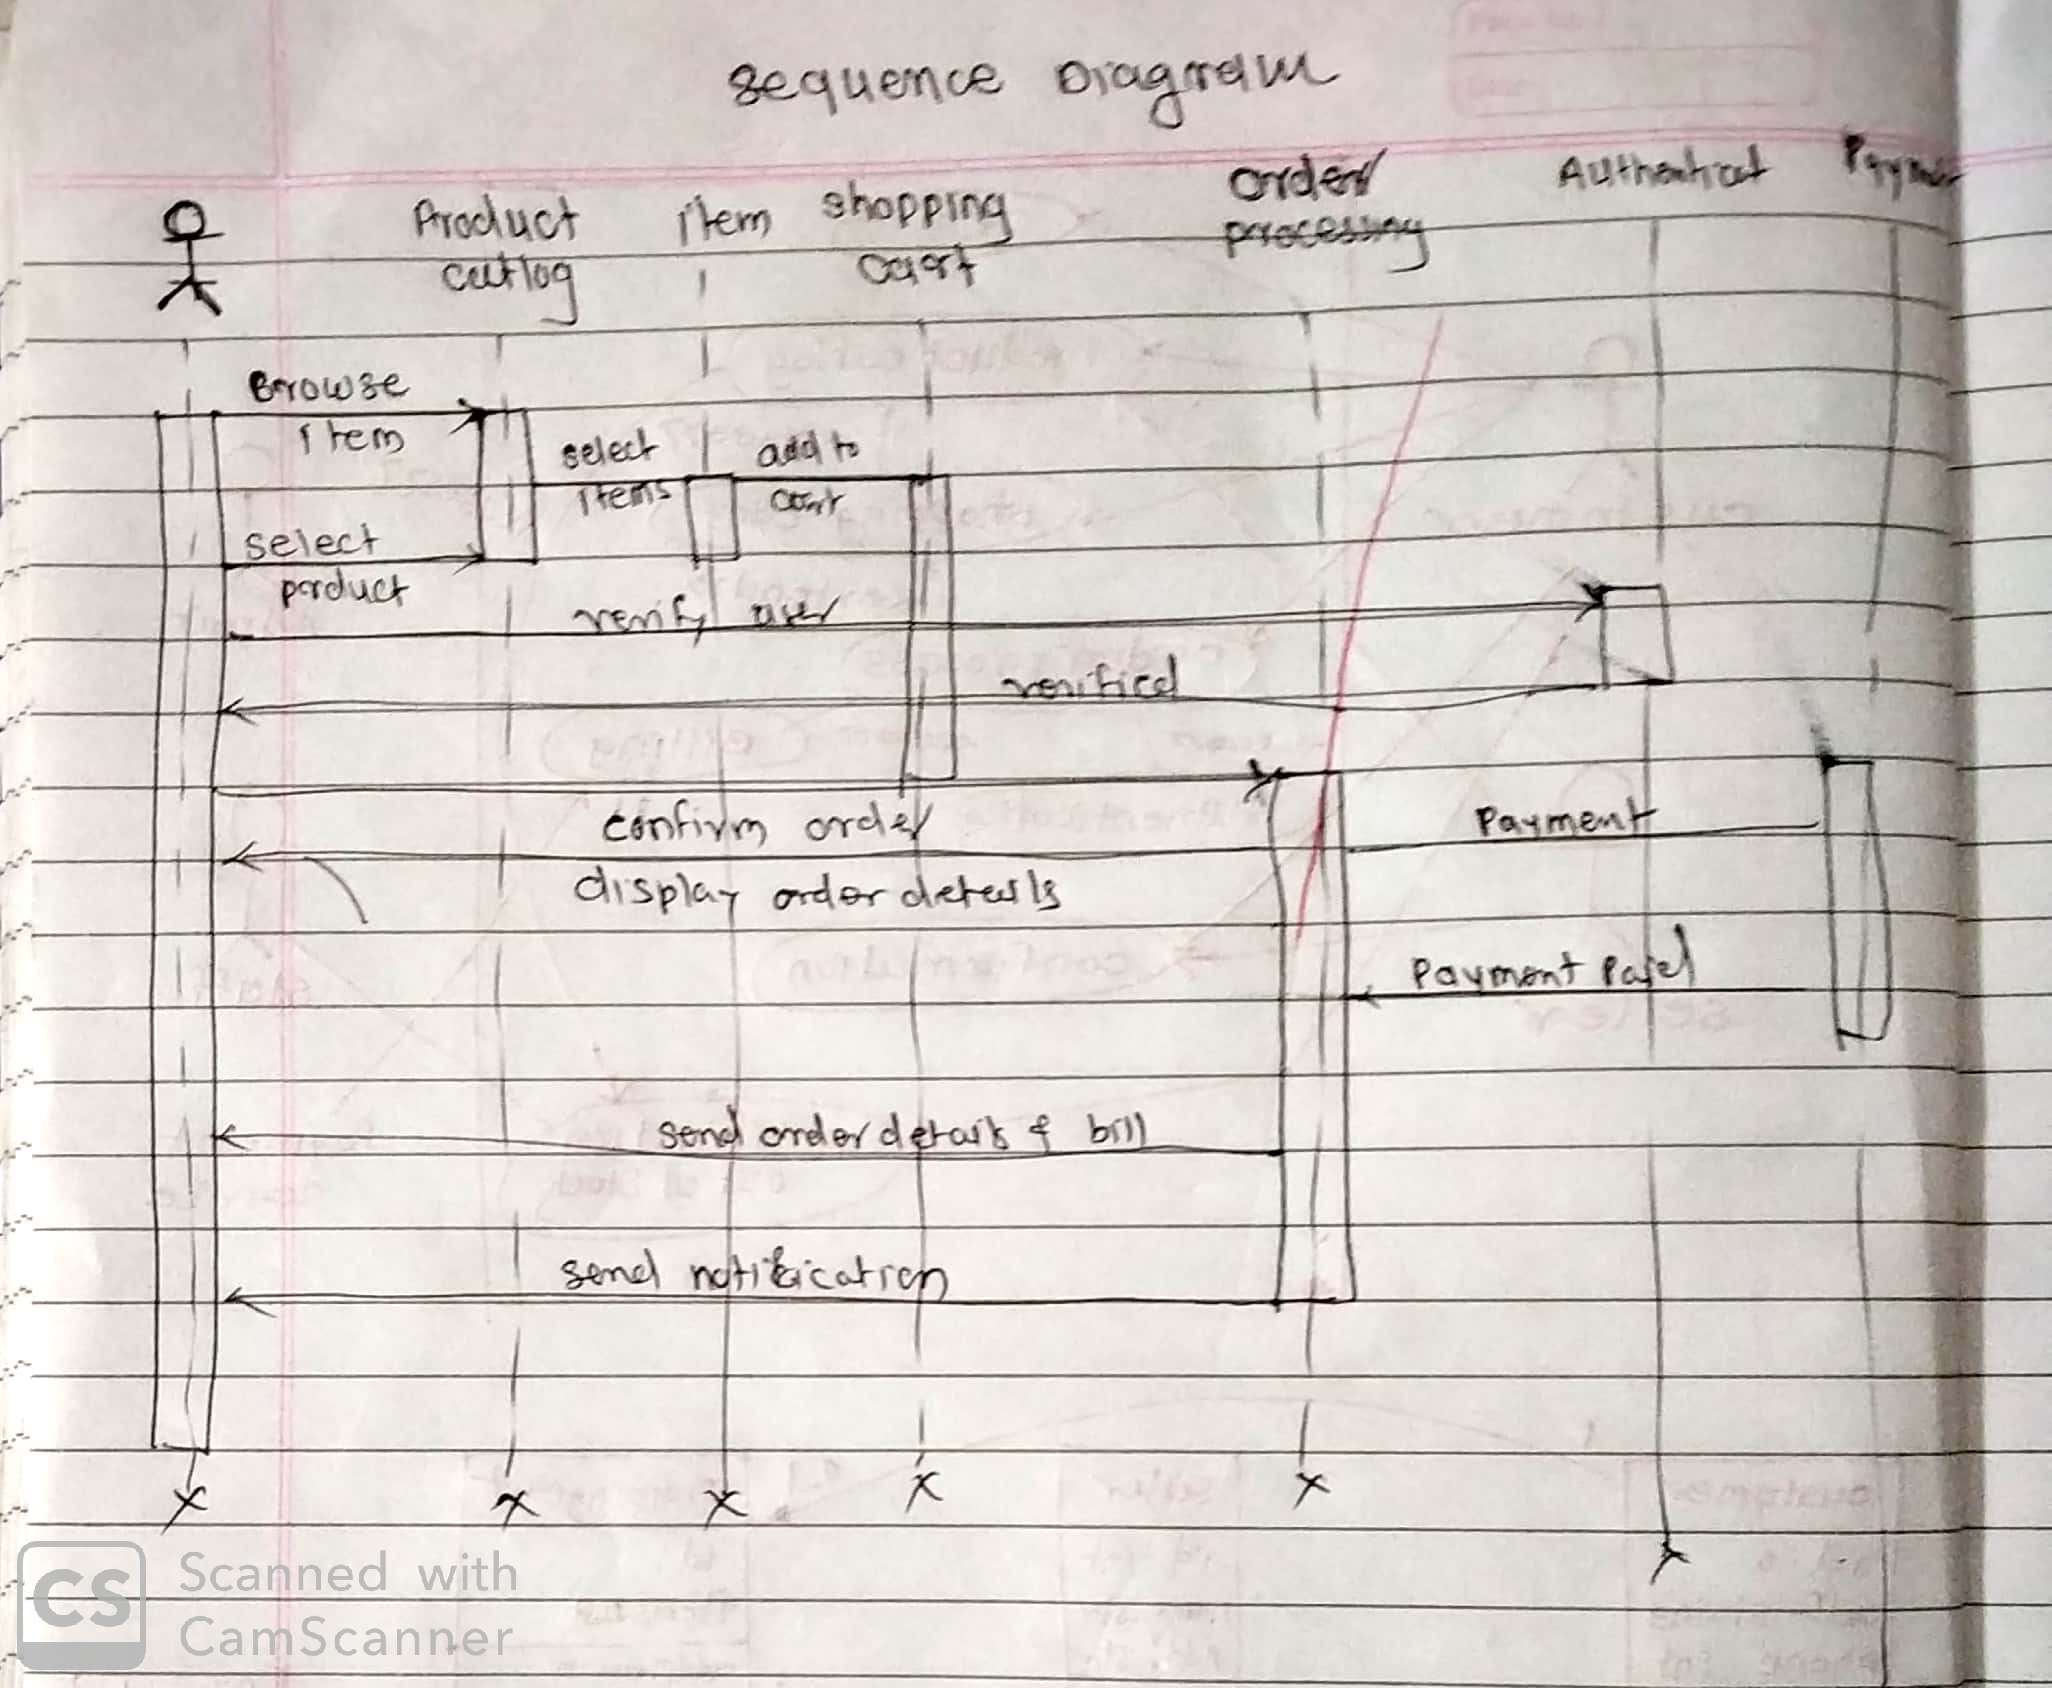 sequence Diagram
Product
catlog
item
shopping
cart
order
processing
Authenticat
Browse
item
select
items
add to
cart
select
porduct
verify user
verified
confirm order
Payment
display order details
Payment Paid
send order details & bill
send notification
CS
Scanned with
CamScanner